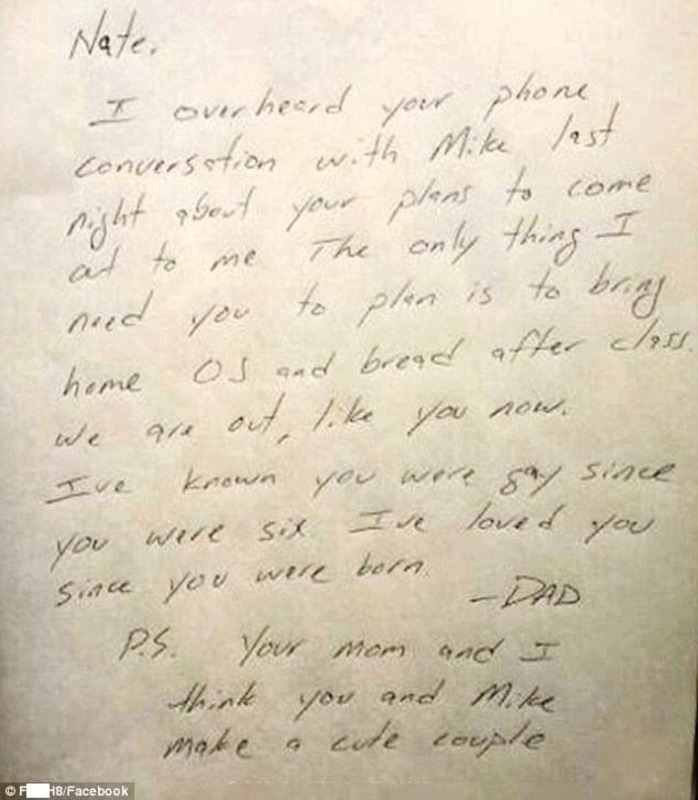 Nate,
I overheard your phone
conversation with Mike last
night about your plans to come
out to me The only thing I
need you to plan is to bring
home OJ and bread after class.
We are out, like you now.
I've known you were gay since
you were six I've loved you
since you were born.
-DAD
P.S. Your mom and I
think you and Mike
make a cute couple
© F H8/Facebook